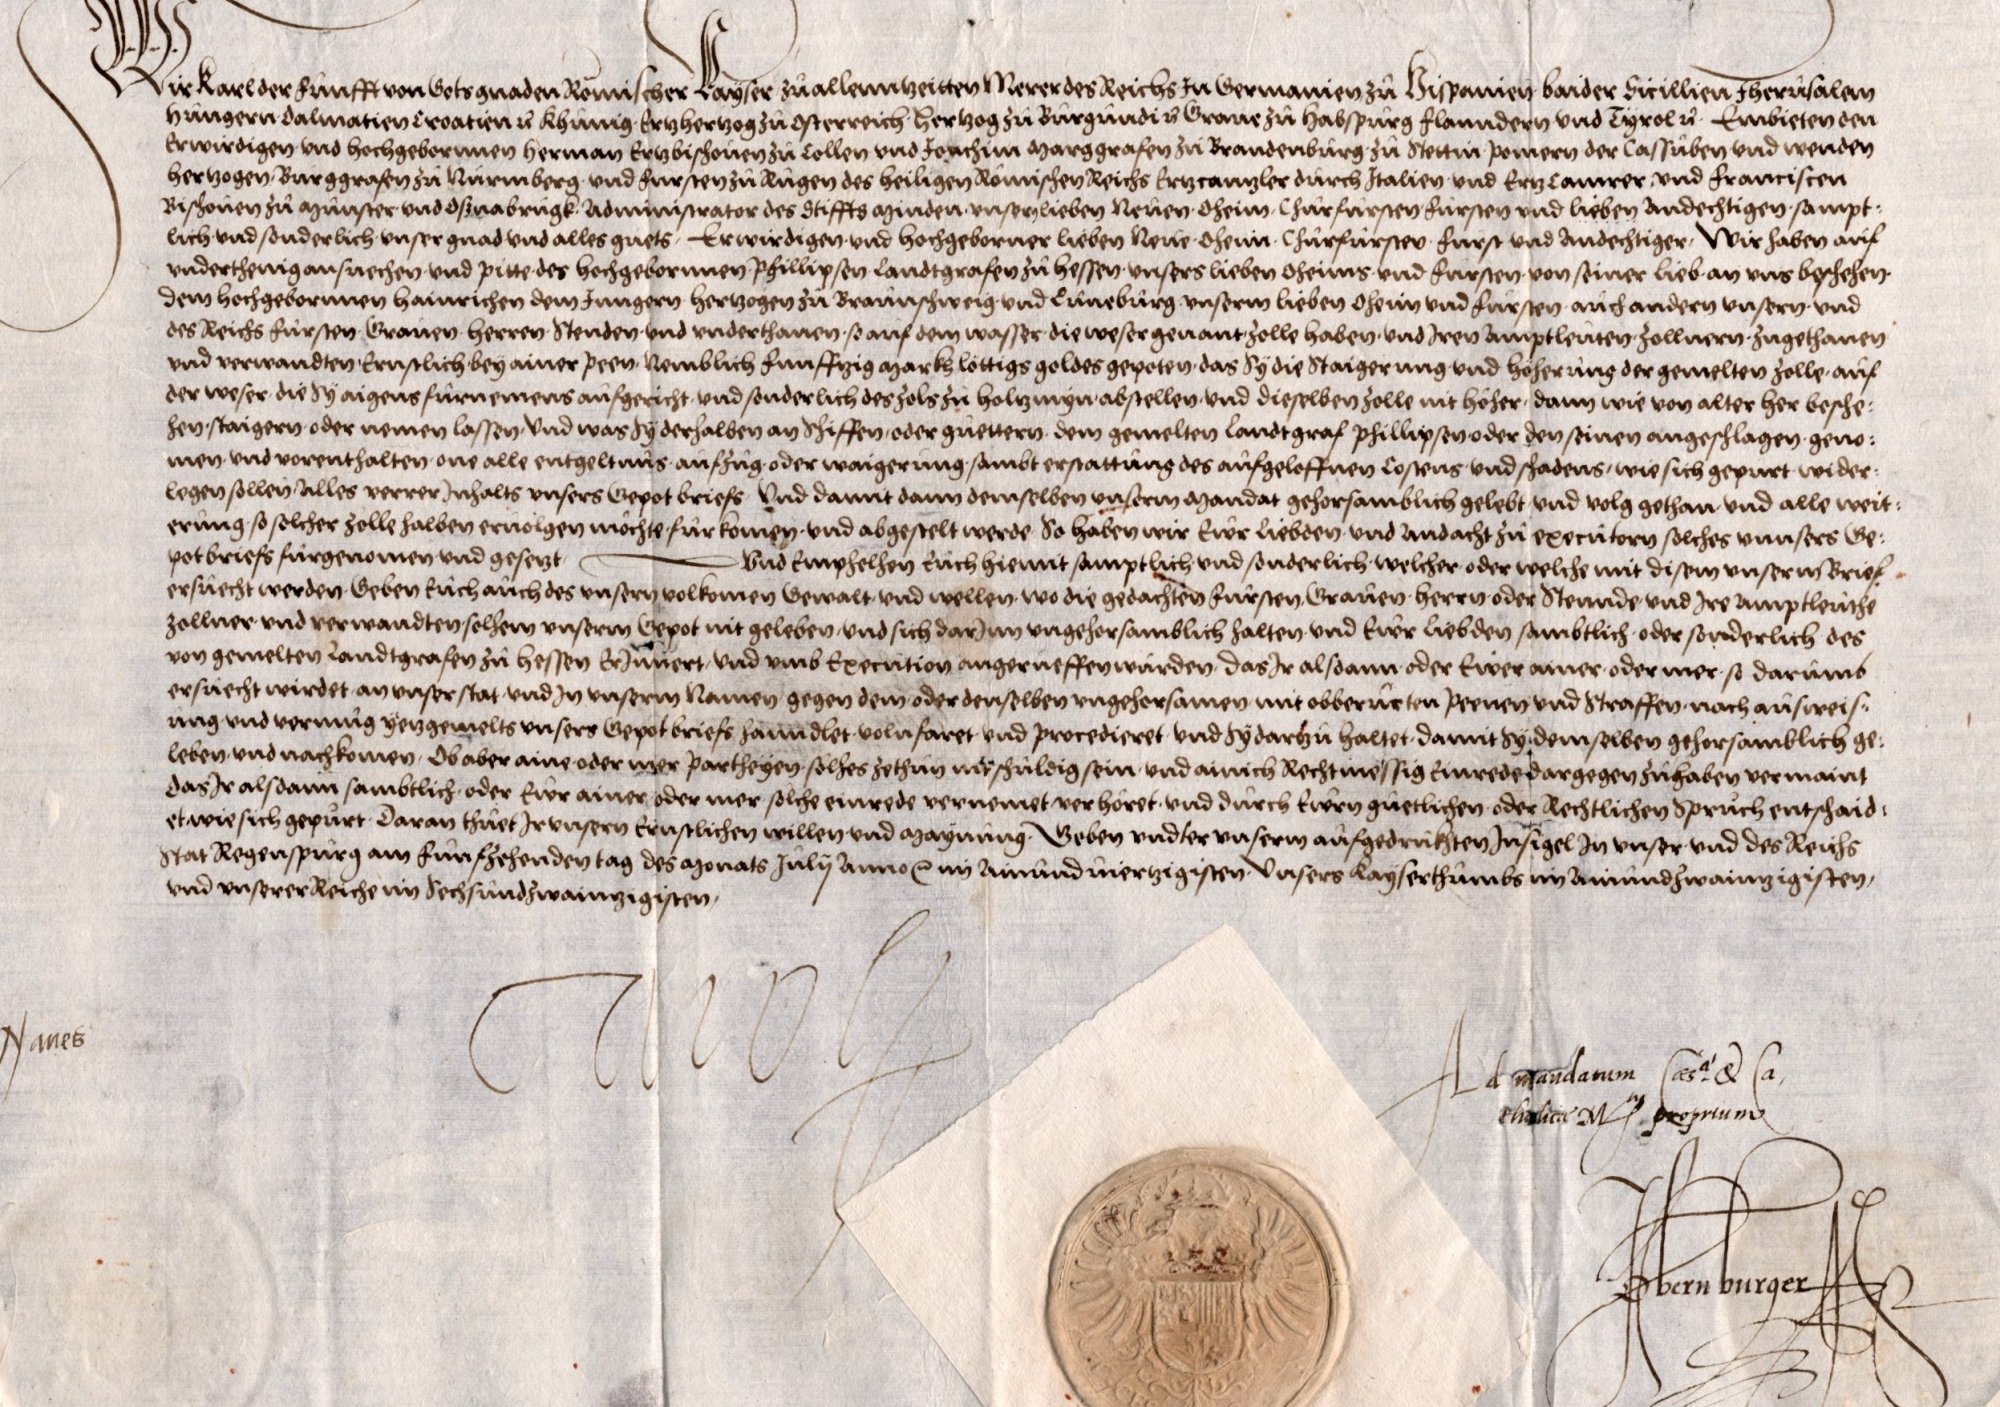 Wir Karl der Fünfft von Gots gnaden Römischer Kayser zu allenntzeitten Merer des Reichs In Germanien zu Hispanien baider Sicillien Jherusalem
Hungern Dalmatien Croatien &c Khünig Ertzhertzog zu Osterreich Hertzog zu Burgundi &c Graue zu Habspurg Flanndern und Tyrol &c Embieten den
Erwirdigen vnd hochgebornnen Herman Ertzbischouen zu Collen vnd Joachim Marggrafen zu Brandenburg zu Stettin Pomern der Cassuben vnd wenden
hertzogen Burggrafen zu Nürmberg vnd Fürsten zu Rügen des heiligen Römischen Reichs Ertzcanntzler durch Italien vnd Ertz Camrer vnd Franciscen
Bischouen zu Münster vnd Oßnabrugk Administrator des Stiffts Minden vnsern lieben Neuen Oheim Churfürsten Fürsten vnd lieben Andechtigen sampt-
lich vnd sonderlich vnser gnad vnd alles guets Erwirdigen vnd hochgeborner lieben Neue Oheim Churfürsten Fürst vnd Andechtiger Wir haben auf
vnderthenig ansuechen vnd pitte des hochgebornnen Phillipsen Landtgrafen zu Hessen vnsers lieben Oheims vnd Fürsten von seiner lieb an vns beschehen
dem hochgebornnen Hainrichen dem Jungern hertzogen zu Braunschweig vnd Lüneburg vnserm lieben Oheim vnd Fürsten auch andern vnsern vnd
des Reichs Fürsten Grauen herren Stenden vnd vnderthanen so auf dem wasser die weser genant zolle haben vnd Iren Amptleuten zollnern zugethanen
vnd verwandten Ernstlich bey ainer Peen Nemblich funffzig Markh löttigs goldes gepoten das Sy die Staigerung vnd höherung der gemelten zolle auf
der weser die Sy aigens fürnemens aufgericht vnd sonderlich des zols zu holtzmyn abstellen vnd dieselben zolle nit höher dann wie von alter her besche-
hen staigern oder nemen lassen Vnd was Sy derhalben an schiffen oder güettern dem gemelten Landtgraf Phillipsen oder den seinen angeschlagen geno-
men vnd vorenthalten one alle entgeltnus aufzug oder waigerung sambt erstattung des aufgeloffnen Costens vnd schadens wie sich gepurt wider-
legen sollen Alles verrer Inhalts vnsers Gepot briefs Vnd damit dann demselben vnserm Mandat gehorsamblich gelebt vnd volg gethan vnd alle weit-
erung so solcher zolle halben eruolgen möchte fürkomen vnd abgestelt werde So haben wir Ewr Liebden vnd Andacht zu executorn solches vnnsers Ge-
pot briefs fürgenomen vnd gesetzt Vnd Emphelhen Euch hiemit samptlich vnd sonderlich welcher oder welche mit disem vnserm Brief
ersuecht werden Geben Euch auch des vnsern volkomen Gewalt vnd wellen wo die gedachten Fürsten Grauen Herrn oder Stennde vnd Ire Amptleuthe
zollner vnd verwandten solhem vnserm Gepot nit geleben vnd sich darinn vngehorsamblich halten vnd Ewr Liebden sambtlich oder sonderlich des
von gemelten Landtgrafen zu Hessen Erinnert vnd vmb Execution angerueffen würden das Ir alsdann oder Ewer ainer oder mer so darumb
ersuecht wirdet an vnser stat vnd In vnserm Namen gegen dem oder denselben vngehorsamen mit obberurten Peenen vnd Straffen nach ausweis-
ung vnd vermug yetzgemelts vnsers Gepot briefs hanndlet volnfaret vnd procedieret vnd Sy dartzu haltet damit Sy demselben gehorsamblich ge-
leben vnd nachkomen Ob aber aine oder mer Partheyen solhes zethun nit schuldig sein vnd ainich Rechtmessig Einrede dargegen zuhaben vermaint
das Ir alsdann sambtlich oder Ewr ainer oder mer solche einrede vernemet verhöret vnd durch Ewrn güetlichen oder Rechtlichen Spruch entschaid-
et wie sich gepurt Daran thuet Ir vnsern Ernstlichen willen vnd Maynung Geben vndter vnserm aufgedrukhten Insigel In vnser vnd des Reichs
Stat Regenspurg am Fünfzehenden tag des Monats July Anno &c im Ainundviertzigisten Vnsers Kayserthumbs im Ainundzwaintzigisten
vnd vnserer Reiche im Sechsundzwaintzigisten
Naues
Ad mandatum Caes. & Ca
tholicae M. proprium
Obernburger